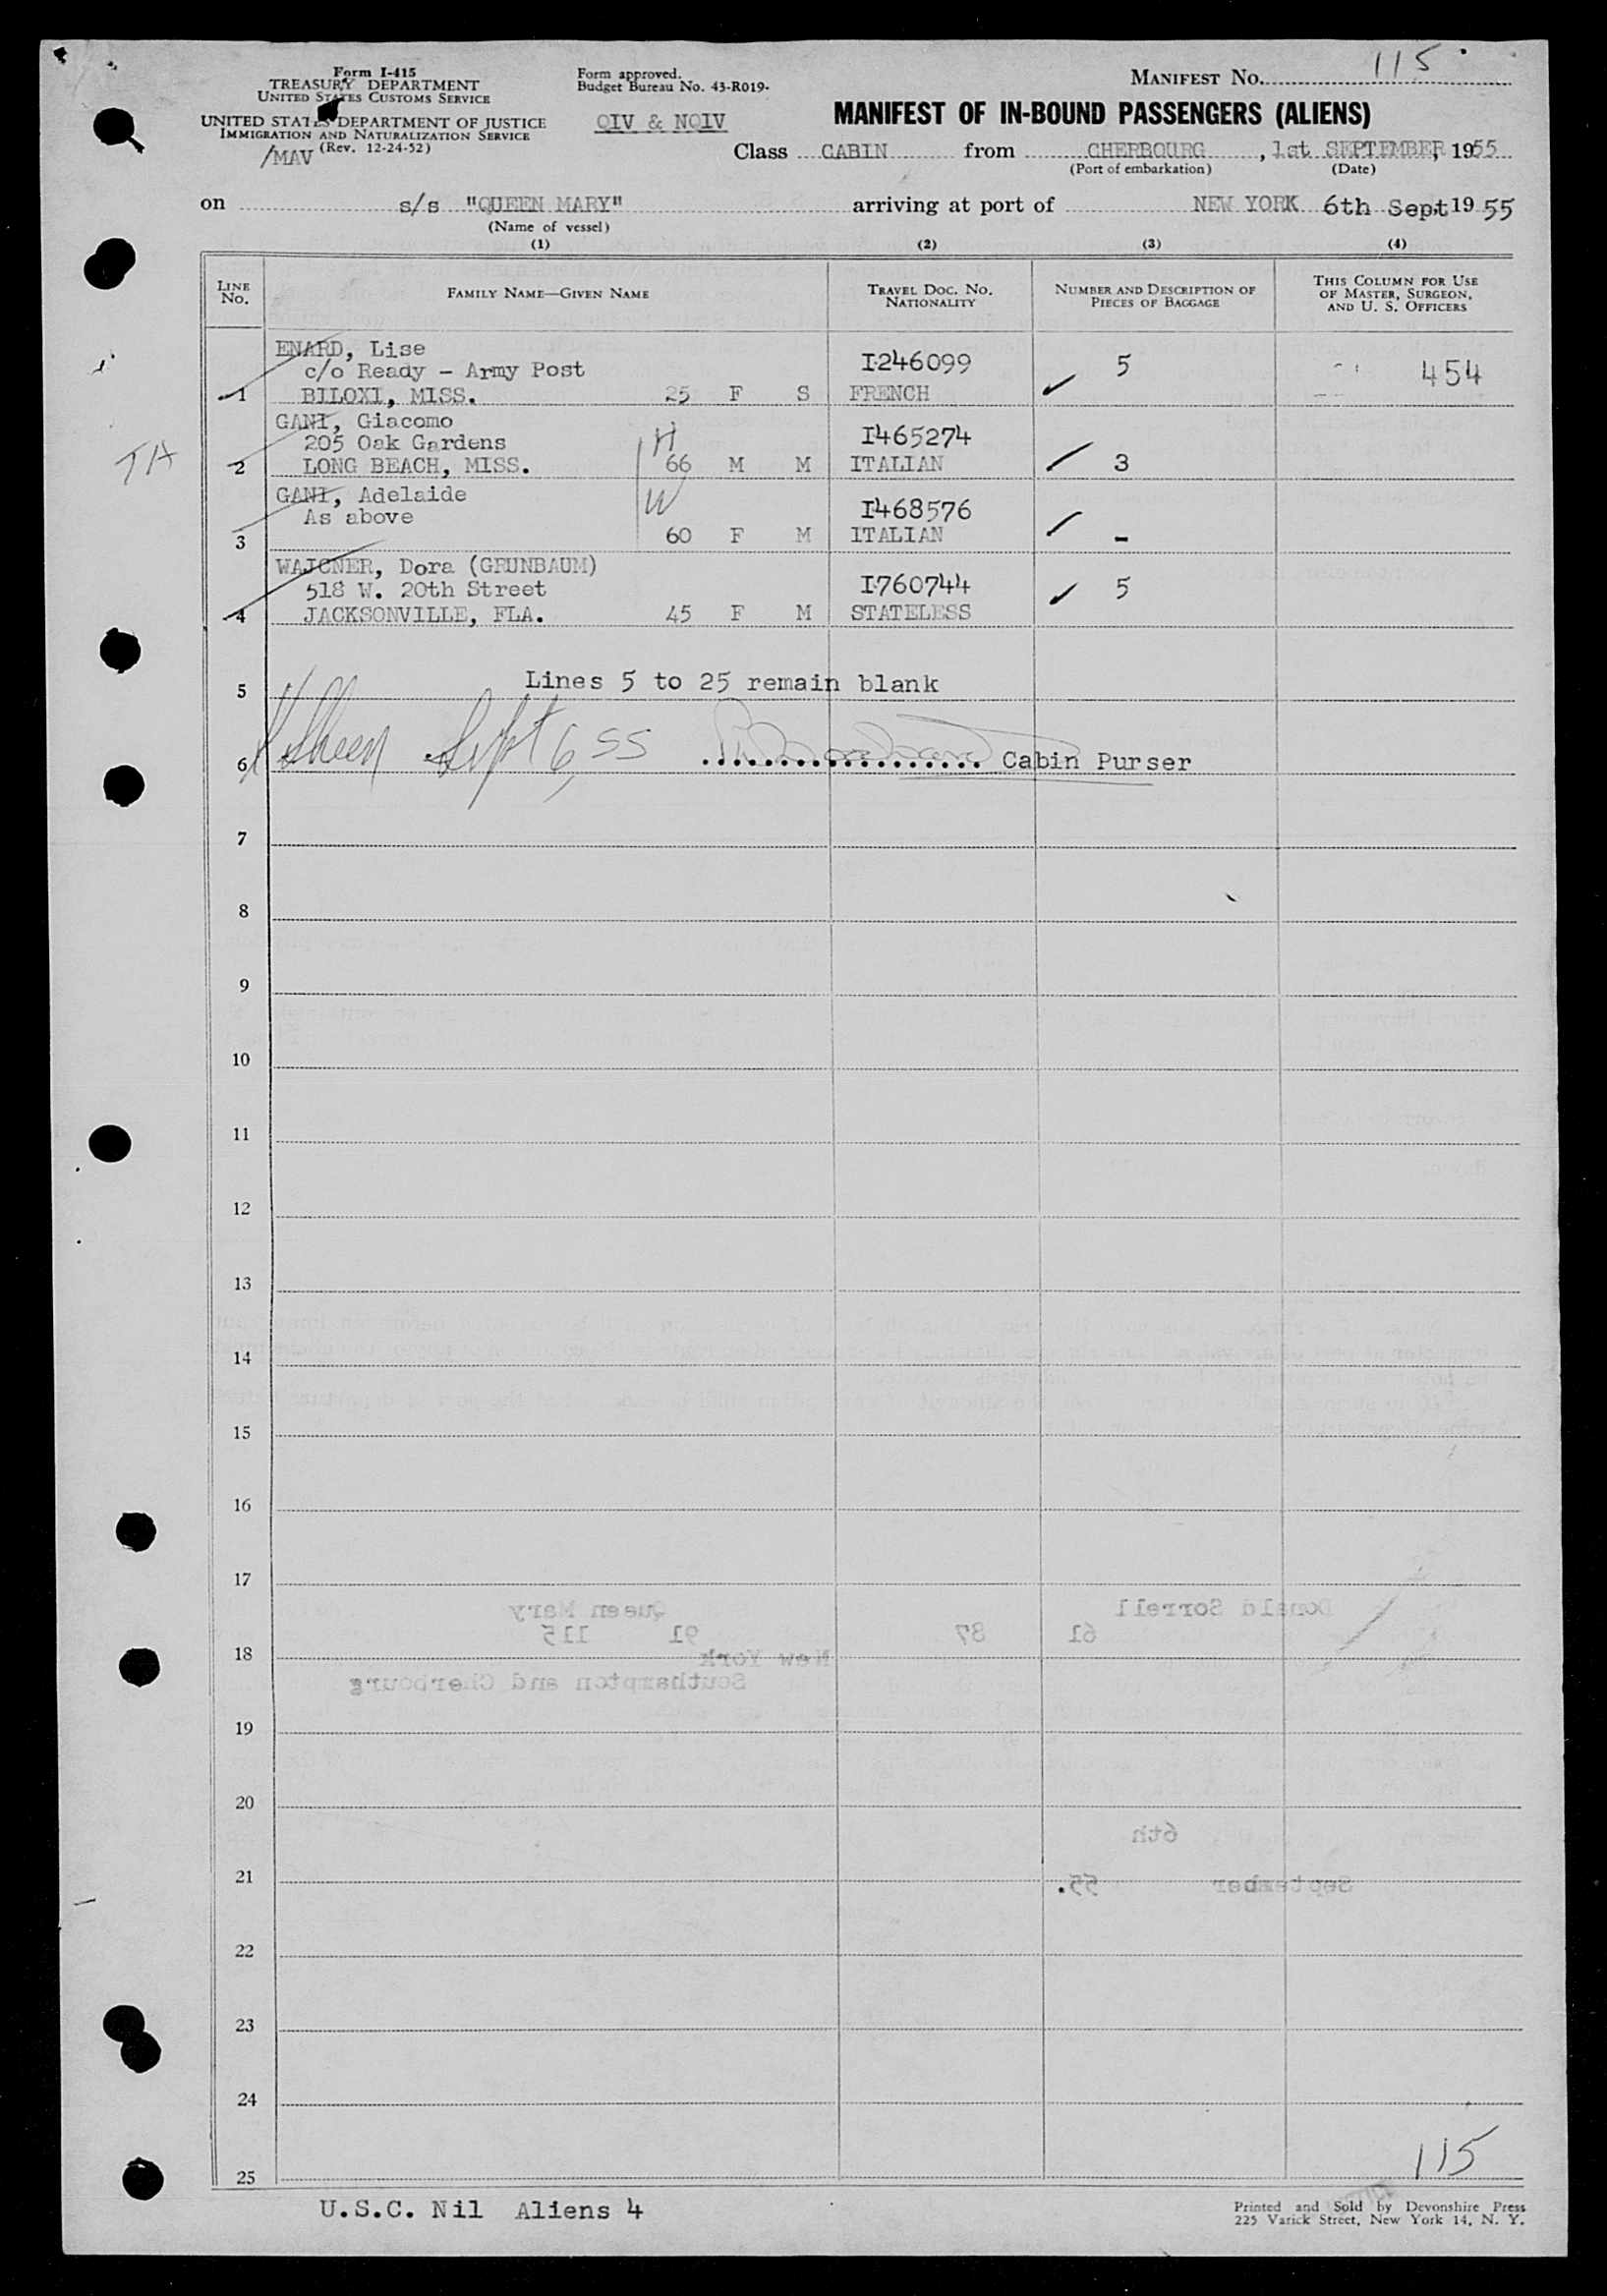 Form I-415
TREASURY DEPARTMENT
UNITED STATES CUSTOMS SERVICE
UNITED STATES DEPARTMENT OF JUSTICE
IMMIGRATION AND NATURALIZATION SERVICE
(Rev. 12-24-52)
/MAV
Form approved.
Budget Bureau No. 43-R019-
QIV & NQIV
MANIFEST No. 115
MANIFEST OF IN-BOUND PASSENGERS (ALIENS)
Class CABIN from CHERBOURG, 1st SEPTEMBER, 1955
(Port of embarkation) (Date)
on s/s "QUEEN MARY" arriving at port of NEW YORK 6th Sept 19 55
(Name of vessel)
(1) (2) (3) (4)
LINE No. FAMILY NAME—GIVEN NAME TRAVEL DOC. No. NATIONALITY NUMBER AND DESCRIPTION OF PIECES OF BAGGAGE THIS COLUMN FOR USE OF MASTER, SURGEON, AND U. S. OFFICERS
ENARD, Lise
c/o Ready - Army Post I-246099 5 454
1 BILOXI, MISS. 25 F S FRENCH
GANI, Giacomo
205 Oak Gardens H I465274
TA 2 LONG BEACH, MISS. 66 M M ITALIAN 3
GANI, Adelaide W
As above I468576
3 60 F M ITALIAN -
WAJCNER, Dora (GRUNBAUM)
518 W. 20th Street I-760744 5
4 JACKSONVILLE, FLA. 45 F M STATELESS
5 Lines 5 to 25 remain blank
6 Sept 6, 55 Cabin Purser
7
8
9
10
11
12
13
14
15
16
17
Queen Mary Donald Sorrell
115 91 87 61
18 New York
Southampton and Cherbourg
19
20
6th
21 September 55.
22
23
24
115
25
U.S.C. Nil Aliens 4
Printed and Sold by Devonshire Press
225 Varick Street, New York 14, N. Y.